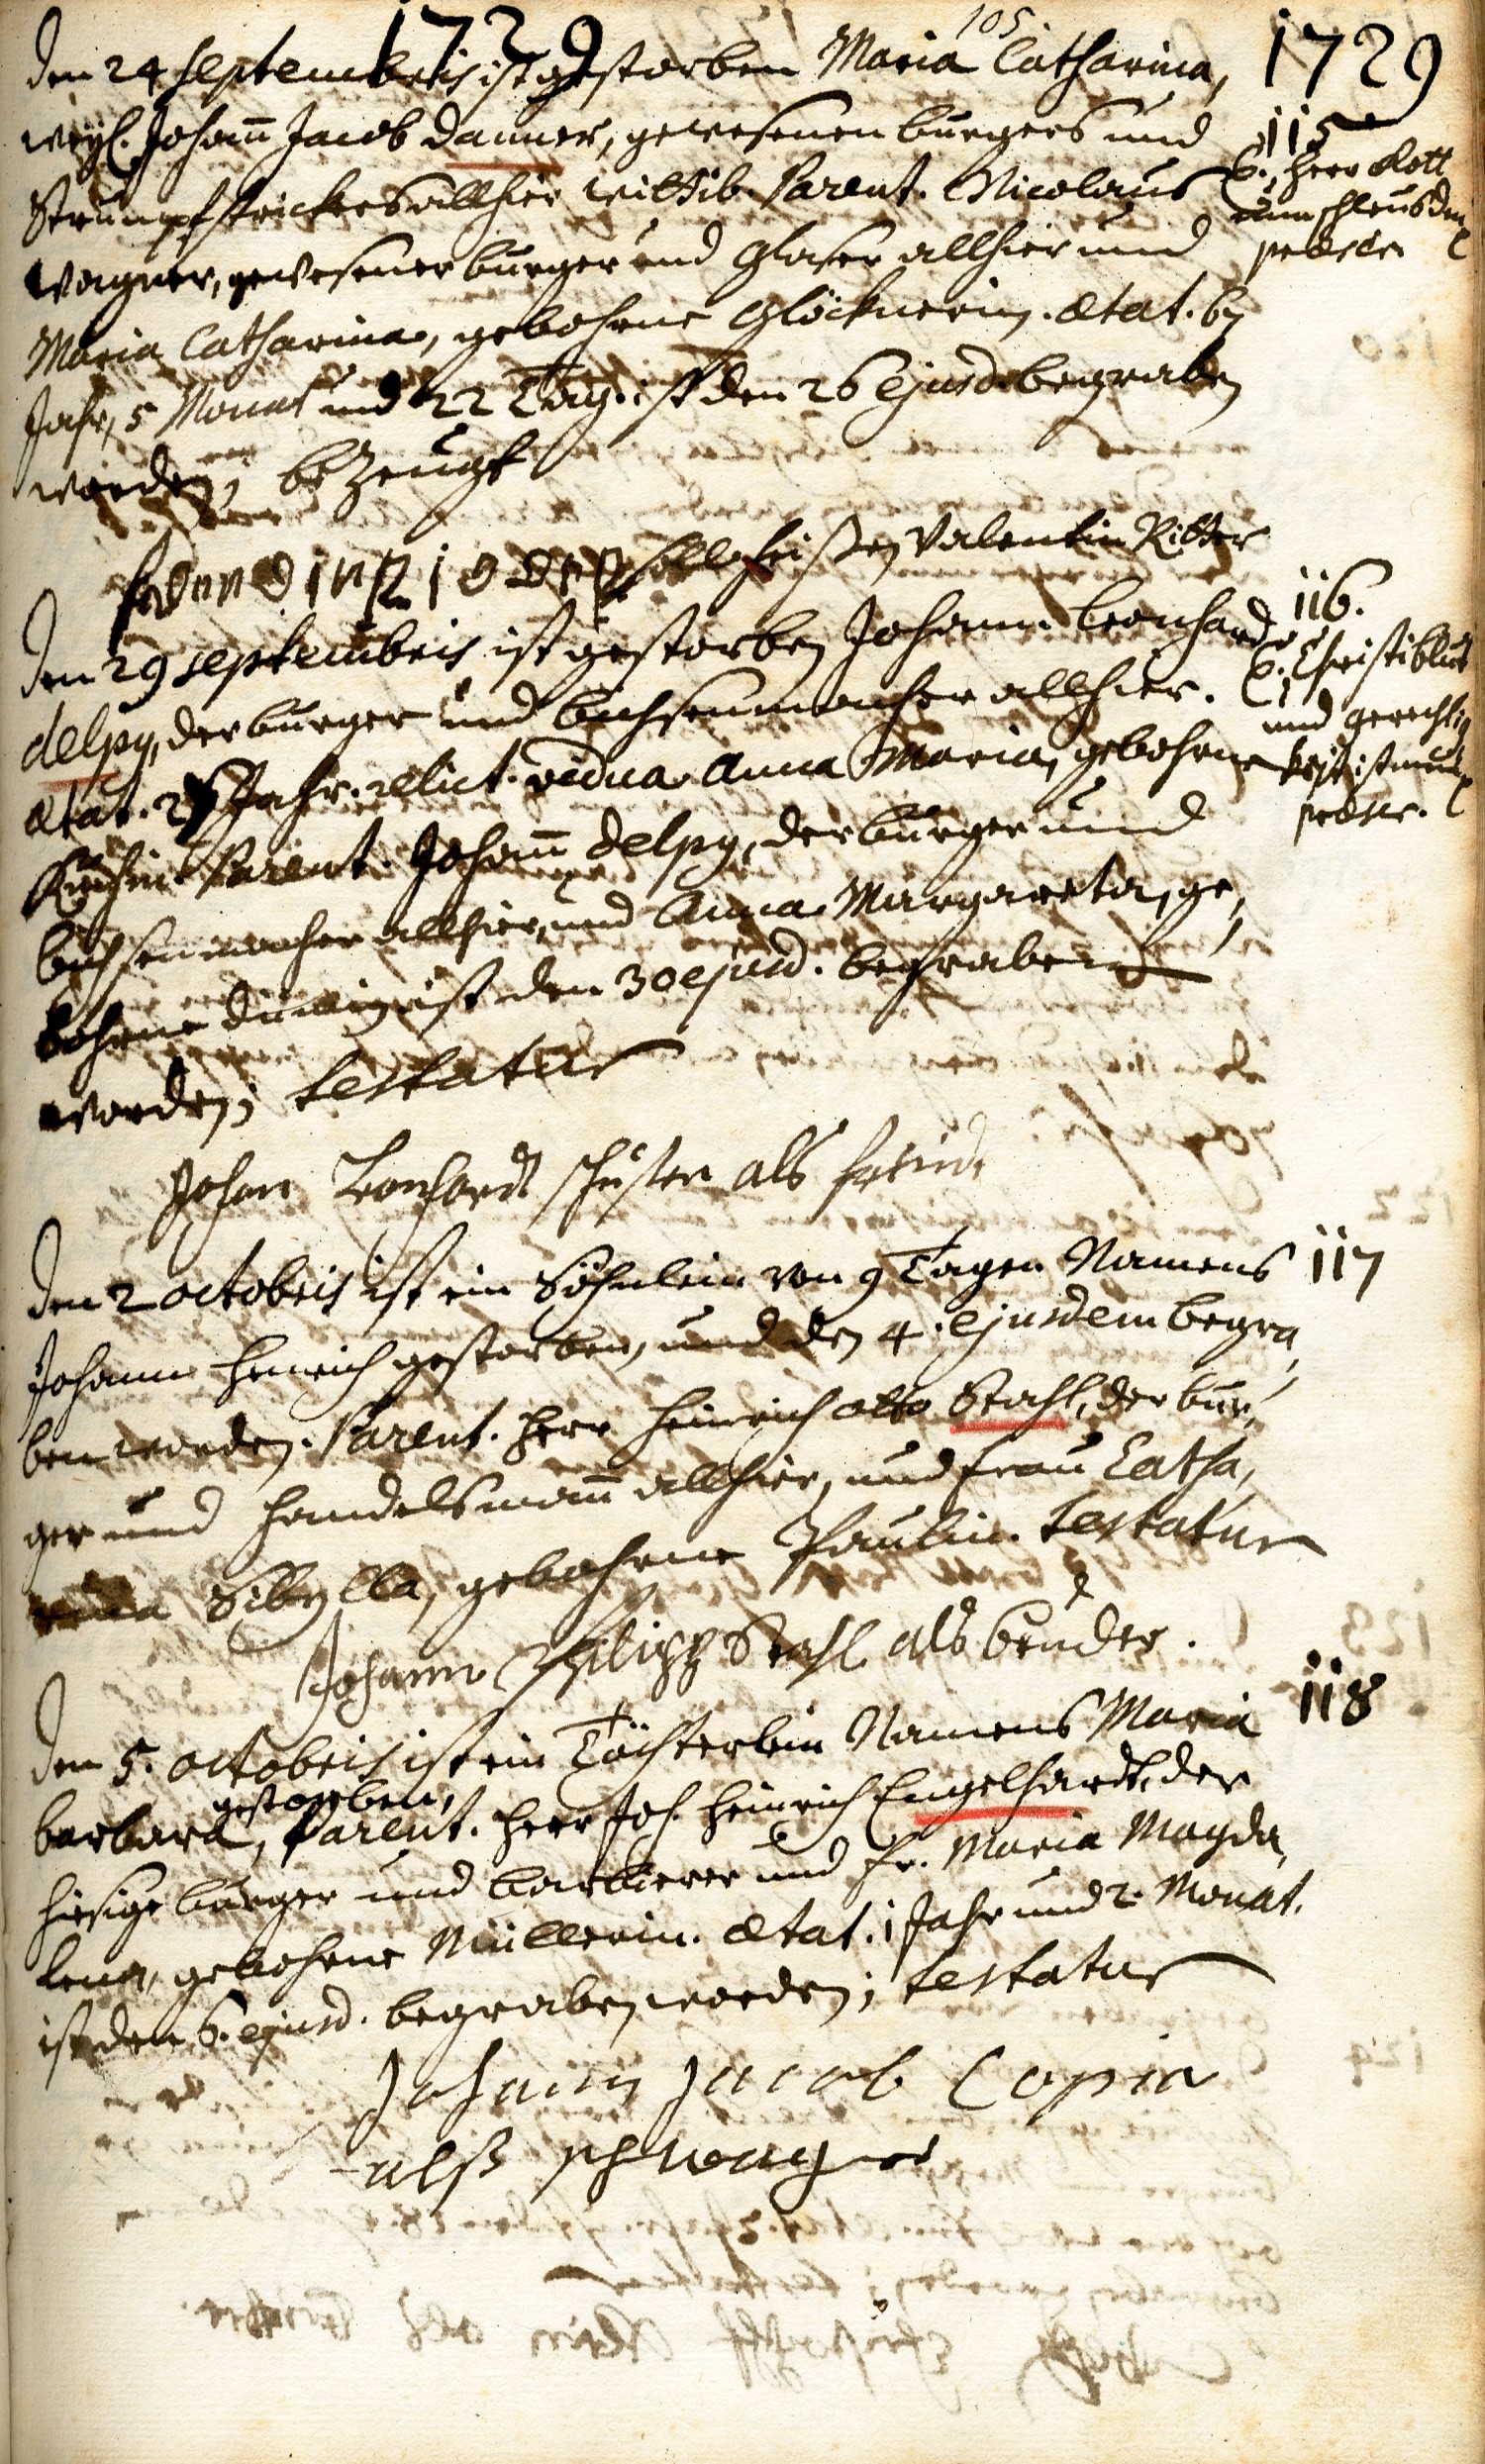 105
1729 1729
den 24 Septembris ist gestorben Maria Catharina,
weyl. Johañ Jacob Danner, gewesenen burgers und
Strumpfstrickers allhier wittib. Parent. Nicolaus
Wagner, gewesener burger und Glaser allhier und
Maria Catharina, gebohrne Glöcknerin. ætat. 67
Jahr, 5 Monat und 22 Tag. ist den 26 ejusd. begraben
worden; bezeugt
115
C. Herr Gott
nun schleus den
soll heissen Valentin Ritter
den 29 Septembris ist gestorben Johann Leonhard
Delpy, der burger und büchsenmacher allhier.
ætat. Jahr. relict. vidua Anna Maria, gebohrne
Parent. Johañ Delpy, der burger und
büchsenmacher allhier, und Anna Margareta, ge,
bohrne ist den 30 ejusd. begraben
worden; testatur
116.
C. Christi blut
und gerechtig
keit ist mein
Johan Leonhardt Schuster als freund
den 2 octobris ist ein Söhnlein von 9 Tagen Namens
Johann Henrich gestorben, und den 4. ejusdem begra,
ben worden. Parent. Herr Heinrich Otto Stahl, der bur,
ger und Handelsmañ allhier, und Frau Catha,
rina Sibylla, gebohrne Paulin. testatur
117
Johann Philipp Stahl als bruder.
den 5. octobris ist ein Töchterlein Namens Maria
gestorben,
barbara, Parent. Herr Joh. Heinrich Engelhardt, der
hiesige burger und barbierer und Fr. Maria Magda,
lena, gebohrne Müllerin. ætat. 1 Jahr und 2. Monat.
ist den 6. ejusd. begraben worden; testatur
118
Johann Jacob Copia
alß schwager